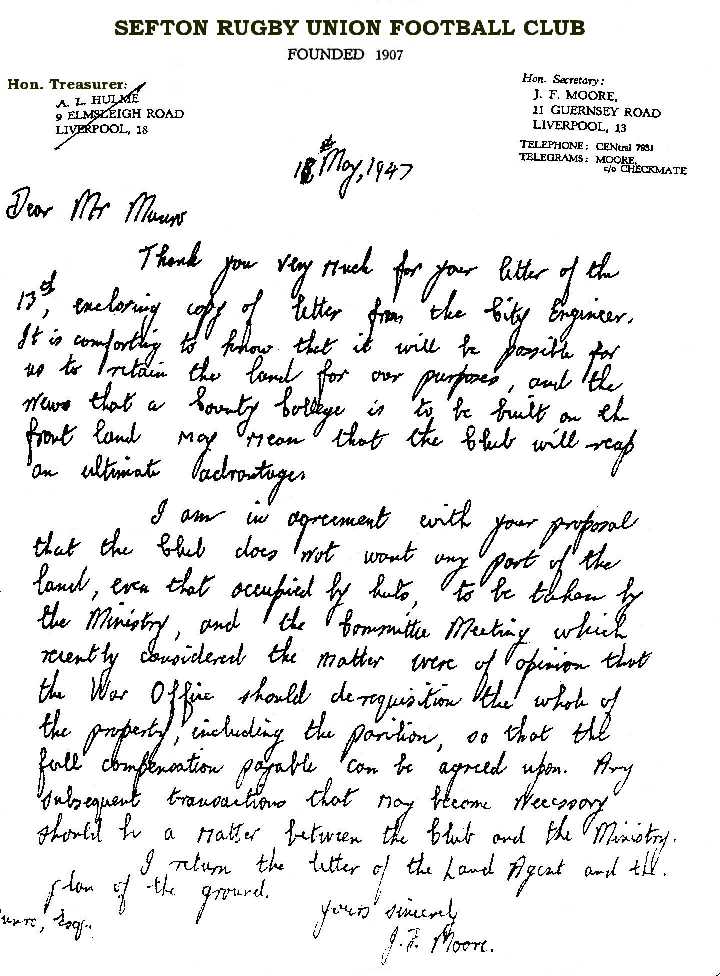 SEFTON RUGBY UNION FOOTBALL CLUB
FOUNDED 1907
Hon. Treasurer:
A. L. HULME
9 ELMSLEIGH ROAD
LIVERPOOL, 18
Hon. Secretary:
J. F. MOORE,
11 GUERNSEY ROAD
LIVERPOOL, 13
TELEPHONE: CENtral 7931
TELEGRAMS: MOORE,
c/o CHECKMATE
18th May, 1947
Dear Mr Munro
Thank you very much for your letter of the
13th, enclosing copy of letter from the City Engineer.
It is comforting to know that it will be possible for
us to retain the land for our purposes, and the
news that a County College is to be built on the
front land may mean that the Club will reap
an ultimate advantage.
I am in agreement with your proposal
that the Club does not want any part of the
land, even that occupied by huts, to be taken by
the Ministry, and the Committee Meeting which
recently considered the matter were of opinion that
the War Office should derequisition the whole of
the property, including the pavilion, so that the
full compensation payable can be agreed upon. Any
subsequent transactions that may become necessary
should be a matter between the Club and the Ministry.
I return the letter of the Land Agent and the
plan of the ground.
Yours sincerely
J. F. Moore.
unro, Esq.